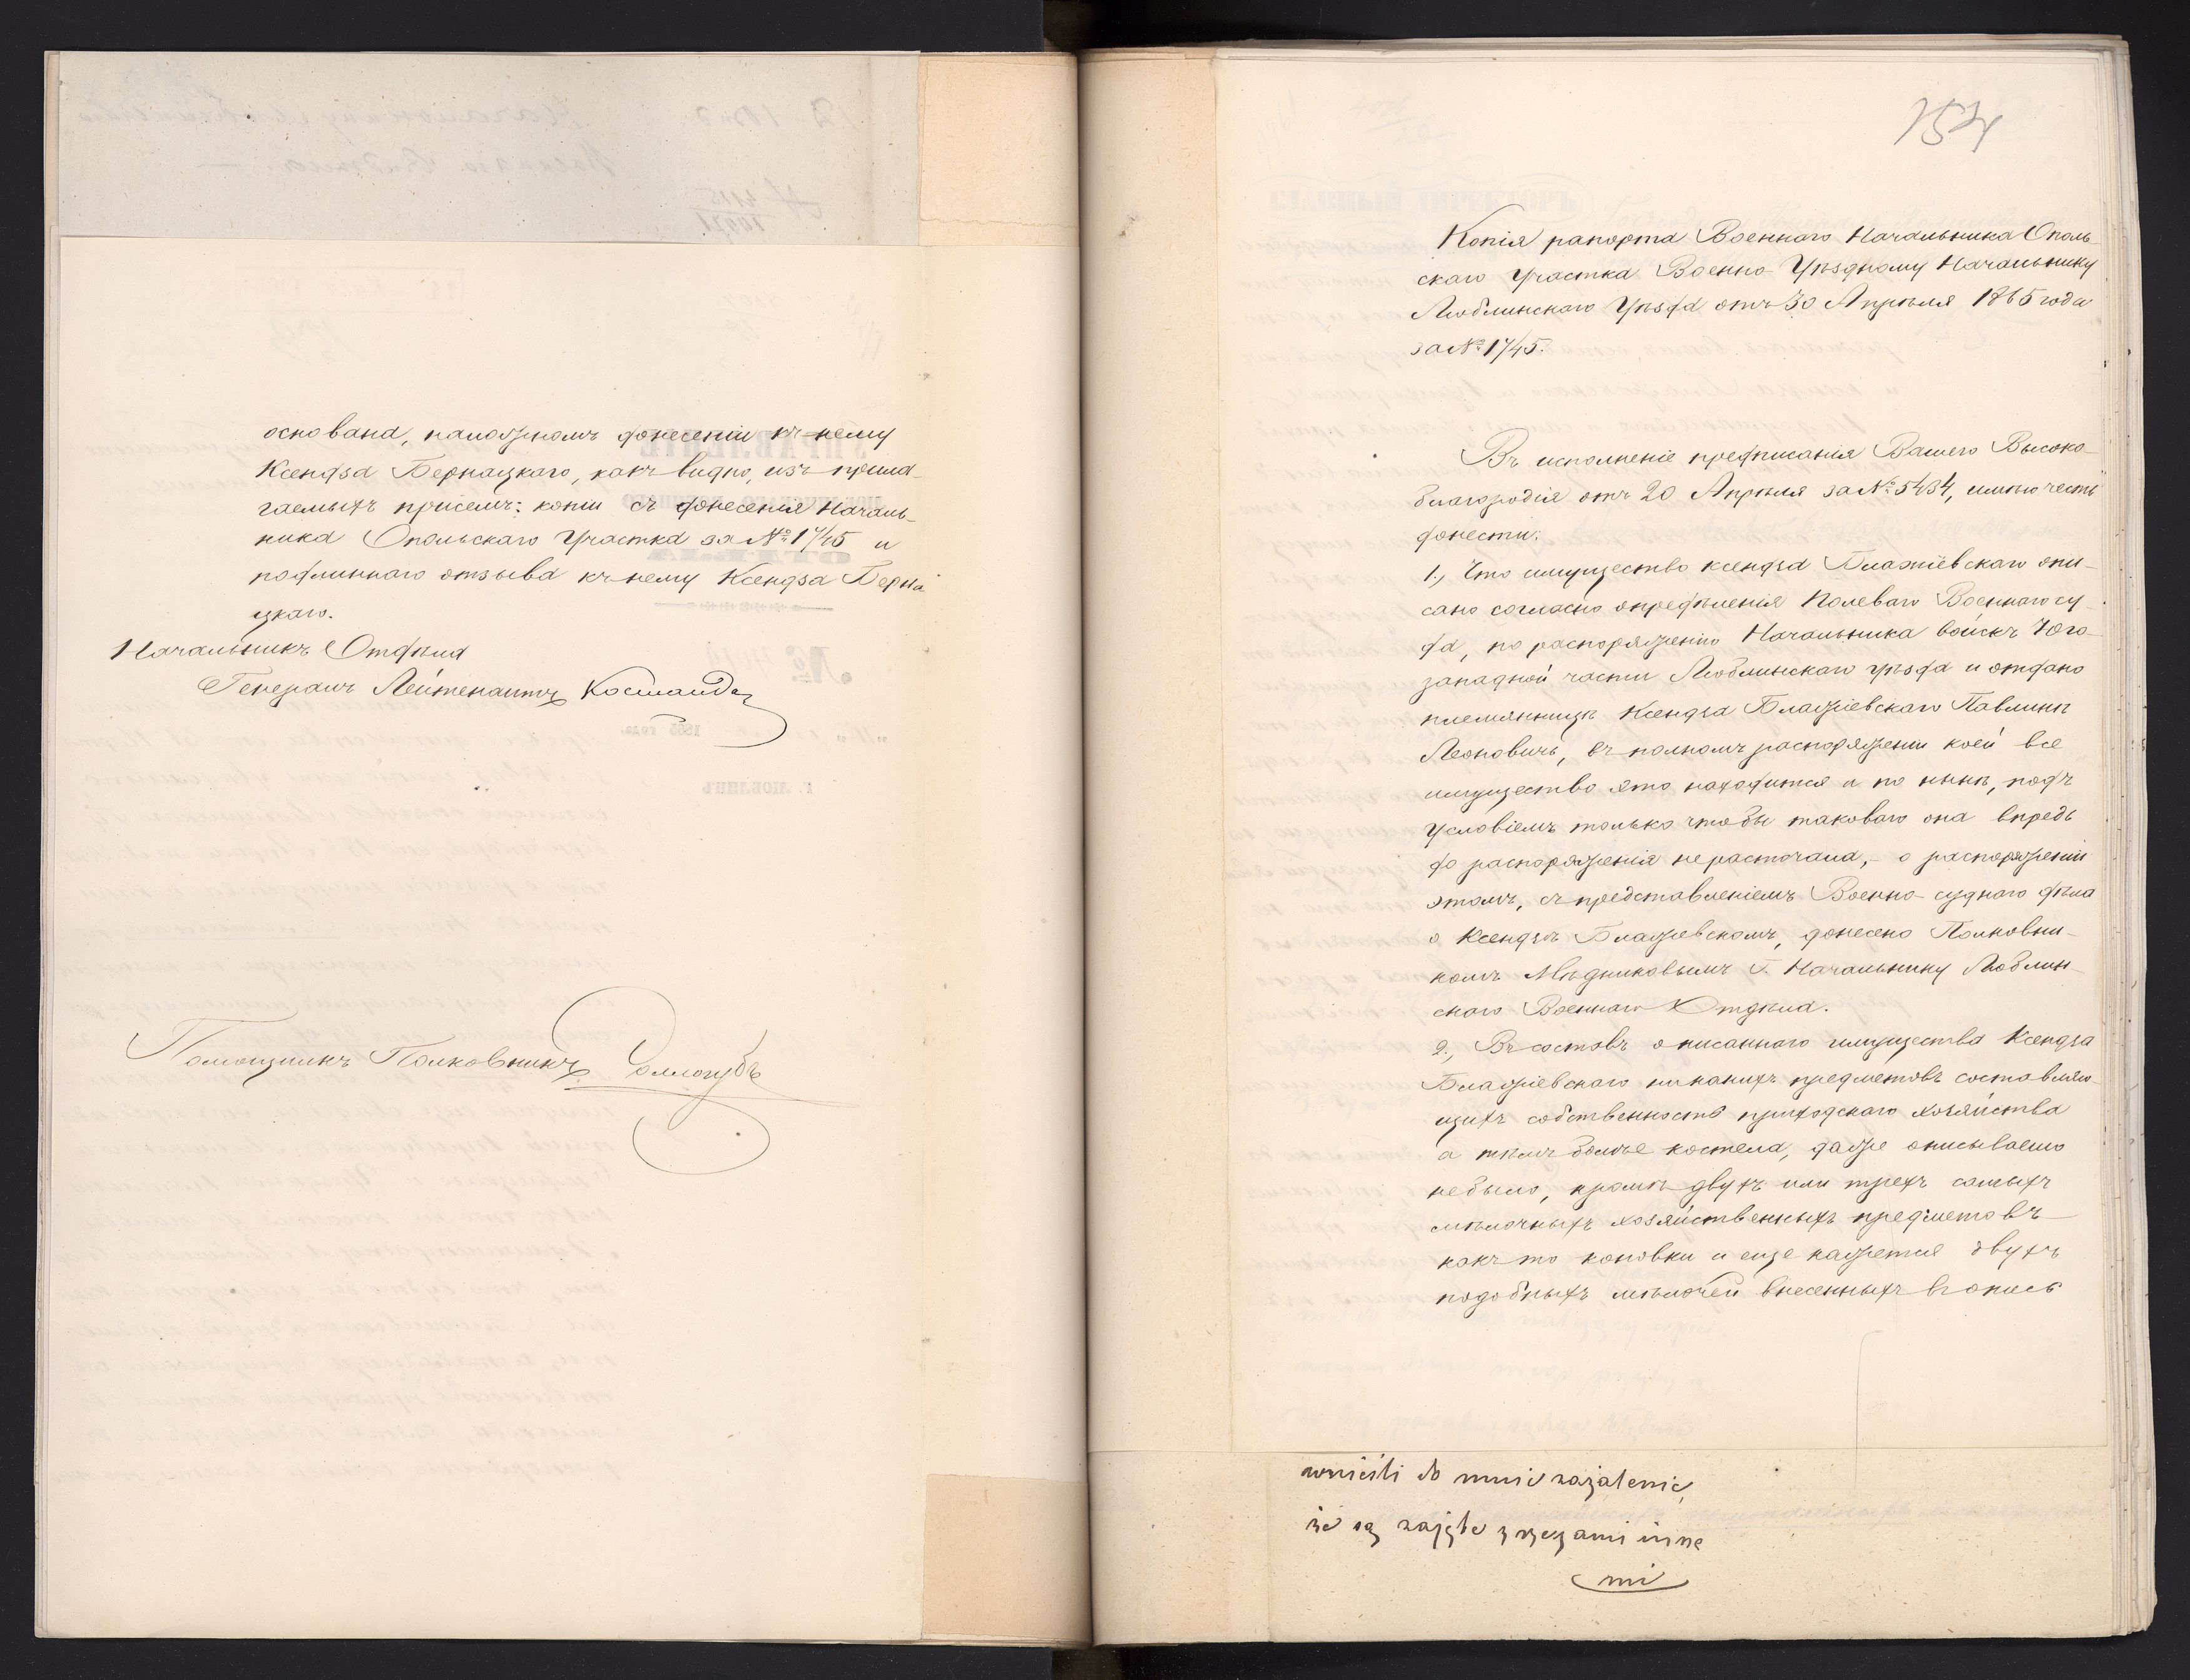 основана, наложномъ донесеніи къ нему
Ксендза Бернацкаго, какъ видно, изъ прила-
гаемыхъ присемъ: копіи съ донесенія Началь-
ника Опольскаго Участка за № 1745 и
подлиннаго отзыва къ нему Ксендза Берна
цкаго.
Начальникъ Отдѣла
Генералъ Лейтенантъ Костанда
Помощникъ Полковникъ
154
Копія рапорта Военнаго Начальника Ополь-
скаго Участка Военно-Уѣздному Начальнику
Люблинскаго Уѣзда отъ 30 Апрѣля 1865 года
за № 1745.
Въ исполненіе предписанія Вашего Высоко-
благородія отъ 20 Апрѣля за № 5434, имѣю честь
донести:
1., Что имущество ксендза Блажіевскаго опи-
сано согласно опредѣленія Полеваго Военнаго су-
да, по распоряженію Начальника войскъ Юго-
западной части Люблинскаго уѣзда и отдано
племянницѣ Ксендза Блажіевскаго Павлинѣ
Леоновичъ, въ полномъ распоряженіи коей все
имущество это находится и по нынѣ, подъ
условіемъ только чтобы таковаго она впредь
до распоряженія нерасточала, - о распоряженіи
этомъ, съ представленіемъ Военно-суднаго дѣла
о Ксендзѣ Блажіевскомъ, донесено Полковни-
комъ Мѣдниковымъ Г. Начальнику Люблин-
скаго Военнаго Отдѣла.
2., Въ составъ описаннаго имущества Ксендза
Блажіевскаго никакихъ предметовъ составляю-
щихъ собственность приходскаго хозяйства
а тѣмъ болѣе костела, даже описываемо
небыло, кромѣ двухъ или трехъ самыхъ
мѣлочныхъ хозяйственныхъ предметовъ
какъ то коновки и еще кажется двухъ
подобныхъ мѣлочей внесенныхъ въ опись
wnieśli do mnie zażalenie,
że są zajęte z rzeczami inne
mi